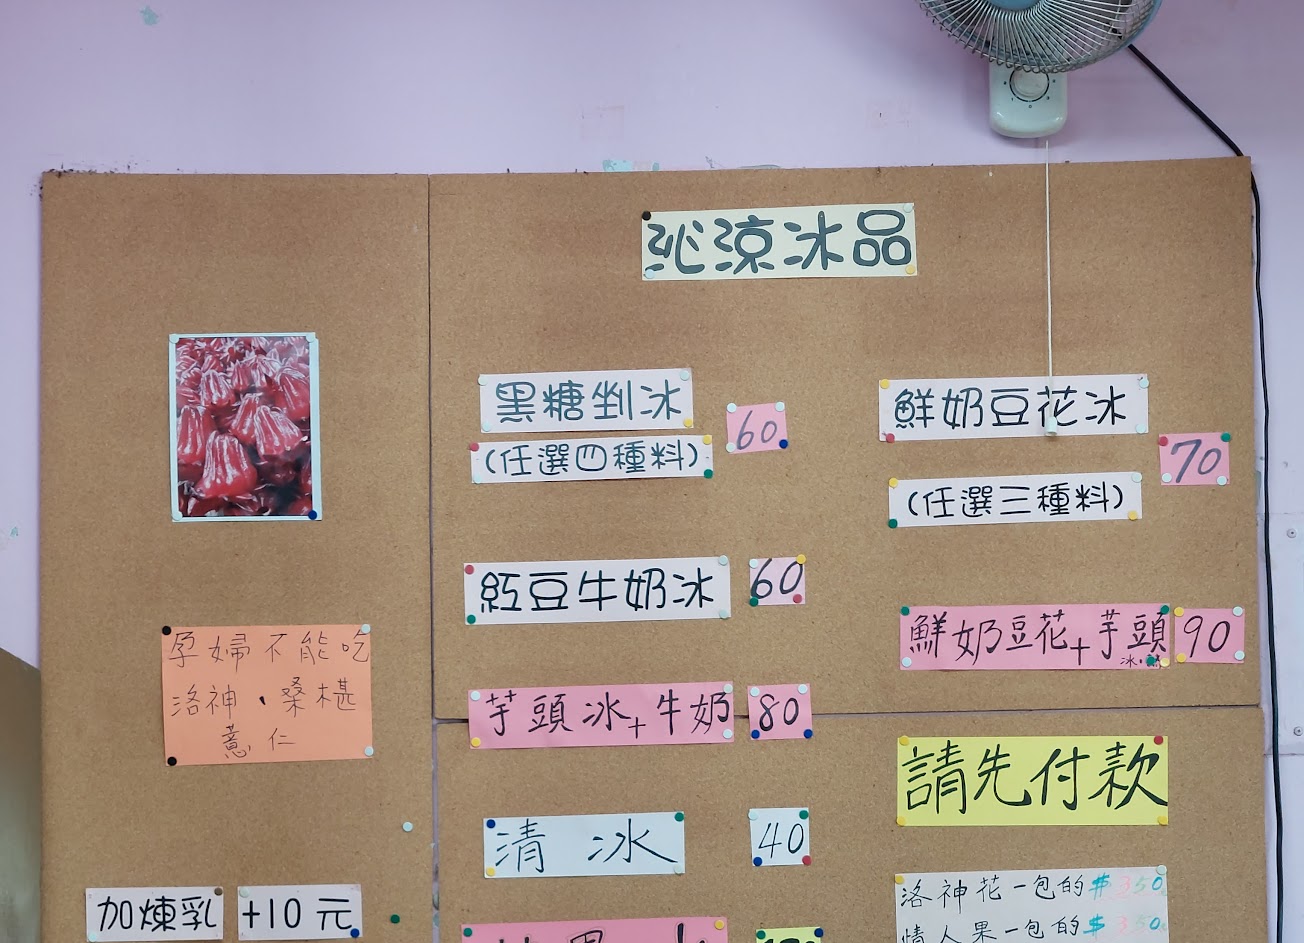 沁涼冰品
黑糖剉冰
(任選四種料)
60
鮮奶豆花冰
(任選三種料)
70
紅豆牛奶冰
60
鮮奶豆花+芋頭
90
芋頭冰+牛奶
80
清冰
40
請先付款
洛神花一包的$350
情人果一包的$350
孕婦不能吃
洛神、桑椹
薏仁
加煉乳
+10元